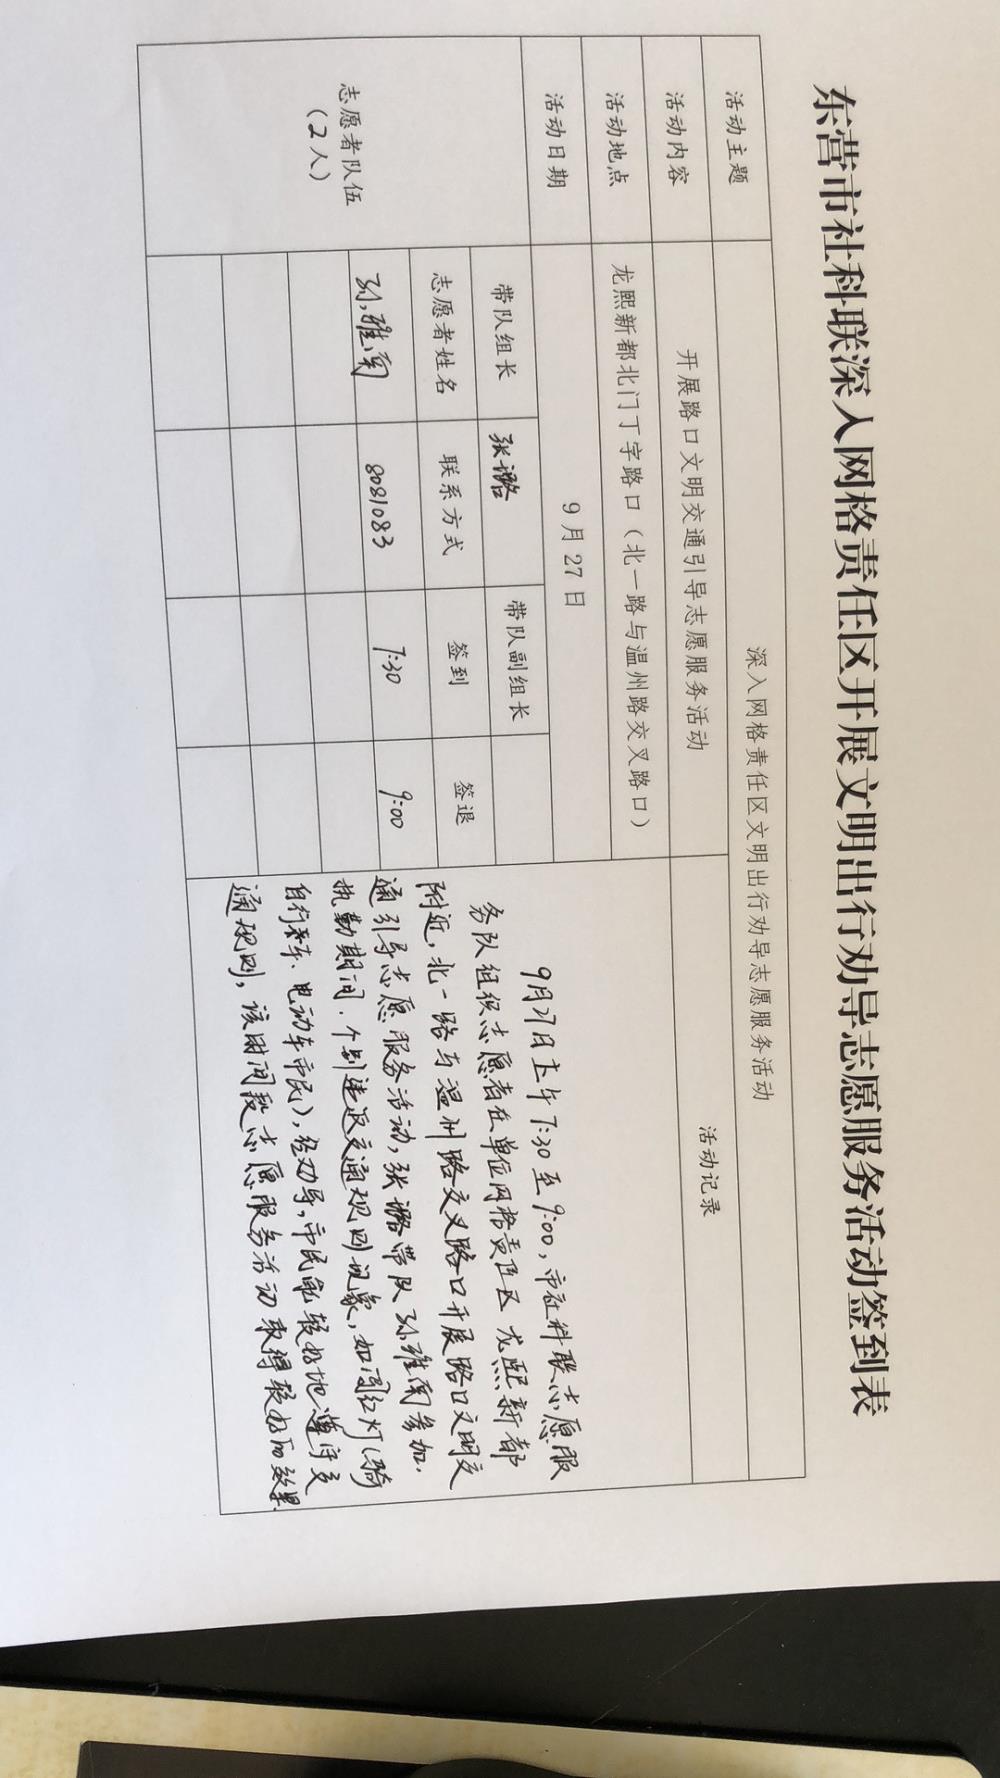 东营市社科联深入网格责任区开展文明出行劝导志愿服务活动签到表
活动主题 深入网格责任区文明出行劝导志愿服务活动
活动内容 开展路口文明交通引导志愿服务活动 活动记录
活动地点 龙熙新都北门丁字路口（北一路与温州路交叉路口）
活动日期 9月27日
志愿者队伍
（2人）
带队组长 张璐 带队副组长
志愿者姓名 联系方式 签到 签退
孙雅南 8081083 7:30 9:00
9月27日上午7:30至9:00，市社科联志愿服
务队组织志愿者在单位网格责任区龙熙新都
附近，北一路与温州路交叉路口开展路口文明交
通引导志愿服务活动，张璐带队孙雅南参加.
执勤期间，个别违反交通规则现象，如闯红灯（骑
自行乘车、电动车市民），经劝导，市民能较好地遵守交
通规则，该时间段志愿服务活动取得较好的效果.